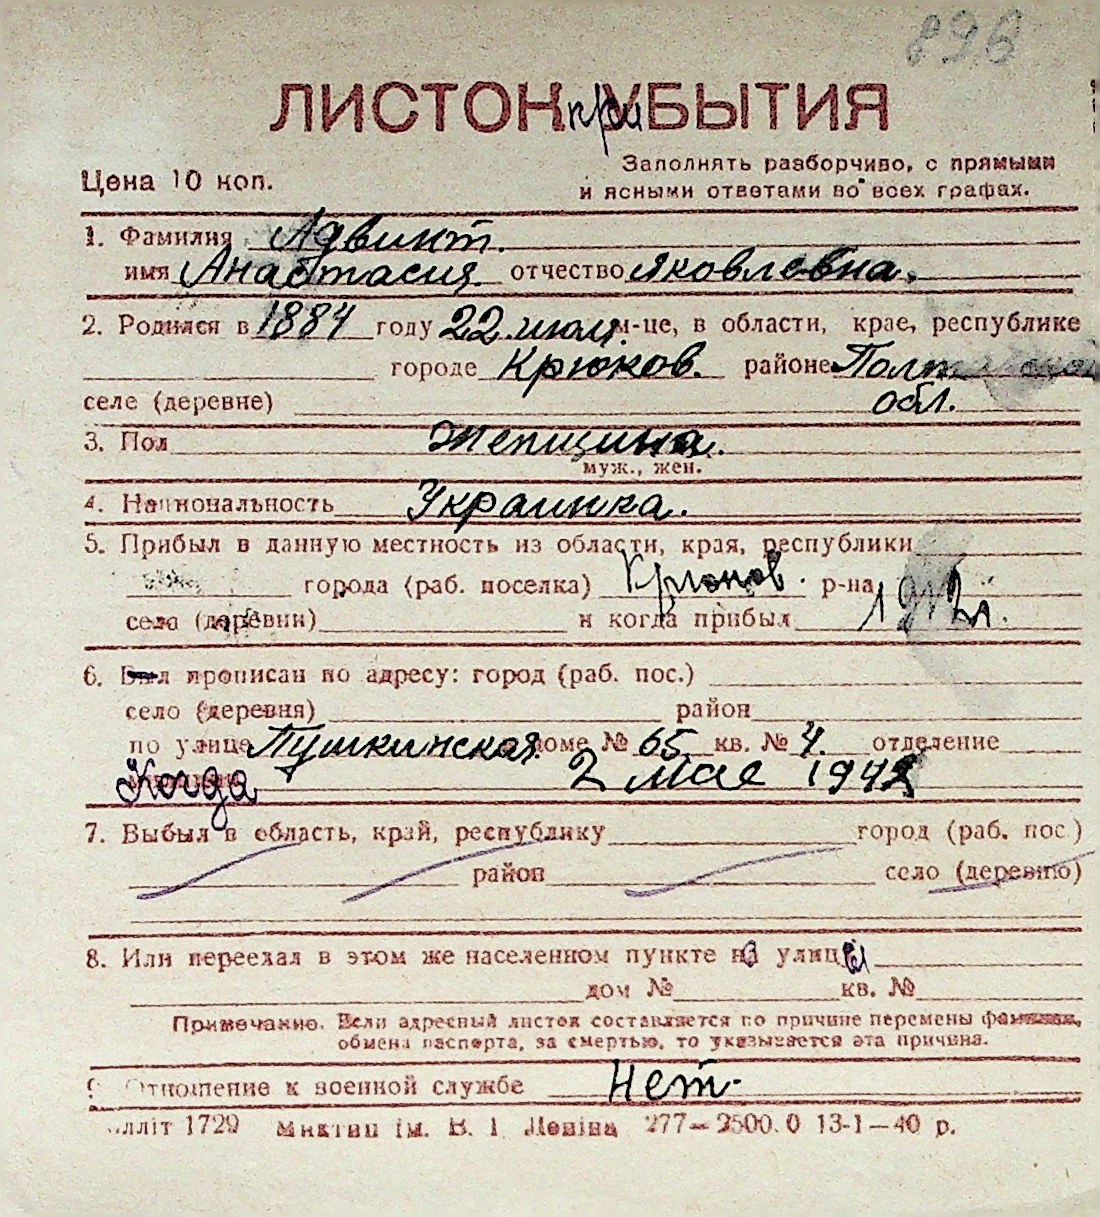 896
ЛИСТОК при УБЫТИЯ
Цена 10 коп.
Заполнять разборчиво, с прямыми
и ясными ответами во всех графах.
1. Фамилия Адвинт.
имя Анастасия. отчество Яковлевна.
2. Родился в 1884 году 22 июля м-це, в области, крае, республике
городе Крюков. районе Полтавской
селе (деревне) обл.
3. Пол женщина.
муж., жен.
4. Национальность Украинка.
5. Прибыл в данную местность из области, края, республики
города (раб. поселка) Крюков. р-на
села (деревни) и когда прибыл 1912 г.
6. Был прописан по адресу: город (раб. пос.)
село (деревня) район
по улице Пушкинская доме № 65 кв. № 4. отделение
Когда 2 мае 1942
7. Выбыл в область, край, республику город (раб. пос.)
район село (деревню)
8. Или переехал в этом же населенном пункте из улицы
дом № кв. №
Примечание. Если адресный листок составляется по причине перемены фамилии,
обмена паспорта, за смертью, то указывается эта причина.
9. Отношение к военной службе Нет.
1729 ім. В. І. Леніна 277—2500.0 13-1—40 р.